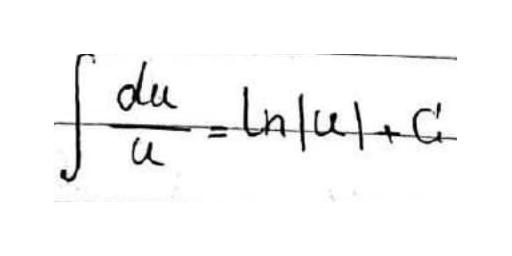 ∫ du/u = ln|u| + C